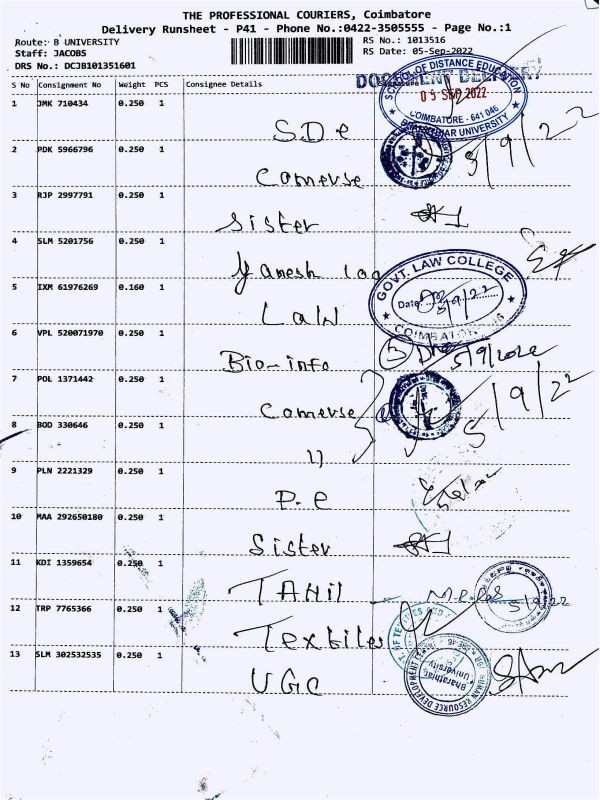 THE PROFESSIONAL COURIERS, Coimbatore
Delivery Runsheet - P41 - Phone No.:0422-3505555 - Page No.:1
Route: B UNIVERSITY
RS No.: 1013516
Staff: JACOBS
RS Date: 05-Sep-2022
DRS No.: DCJB101351601
DOCUMENT DELIVERY
S No Consignment No Weight PCS Consignee Details
SCHOOL OF DISTANCE EDUCATION
05 SEP 2022
COIMBATORE - 641 046
BHARATHIAR UNIVERSITY
1 JMK 710434 0.250 1 SDe
2 PDK 5966796 0.250 1 Comerse 5/9/22
3 RJP 2997791 0.250 1 Sister
4 SLM 5201756 0.250 1 Yanesh
5 IXM 61976269 0.160 1 Law
GOVT. LAW COLLEGE
Date 5/9/22
COIMBATORE
6 VPL 520071970 0.250 1 Bio-info 5/9/2022
7 POL 1371442 0.250 1 Comerse 5/9/22
8 BOD 330646 0.250 1 "
9 PLN 2221329 0.250 1 P.e
10 MAA 292650180 0.250 1 Sister
11 KDI 1359654 0.250 1 TAMil
5/9/22
12 TRP 7765366 0.250 1 Textiles
13 SLM 302532535 0.250 1 UGC
UGC HUMAN RESOURCE DEVELOPMENT
Bharathiar
University